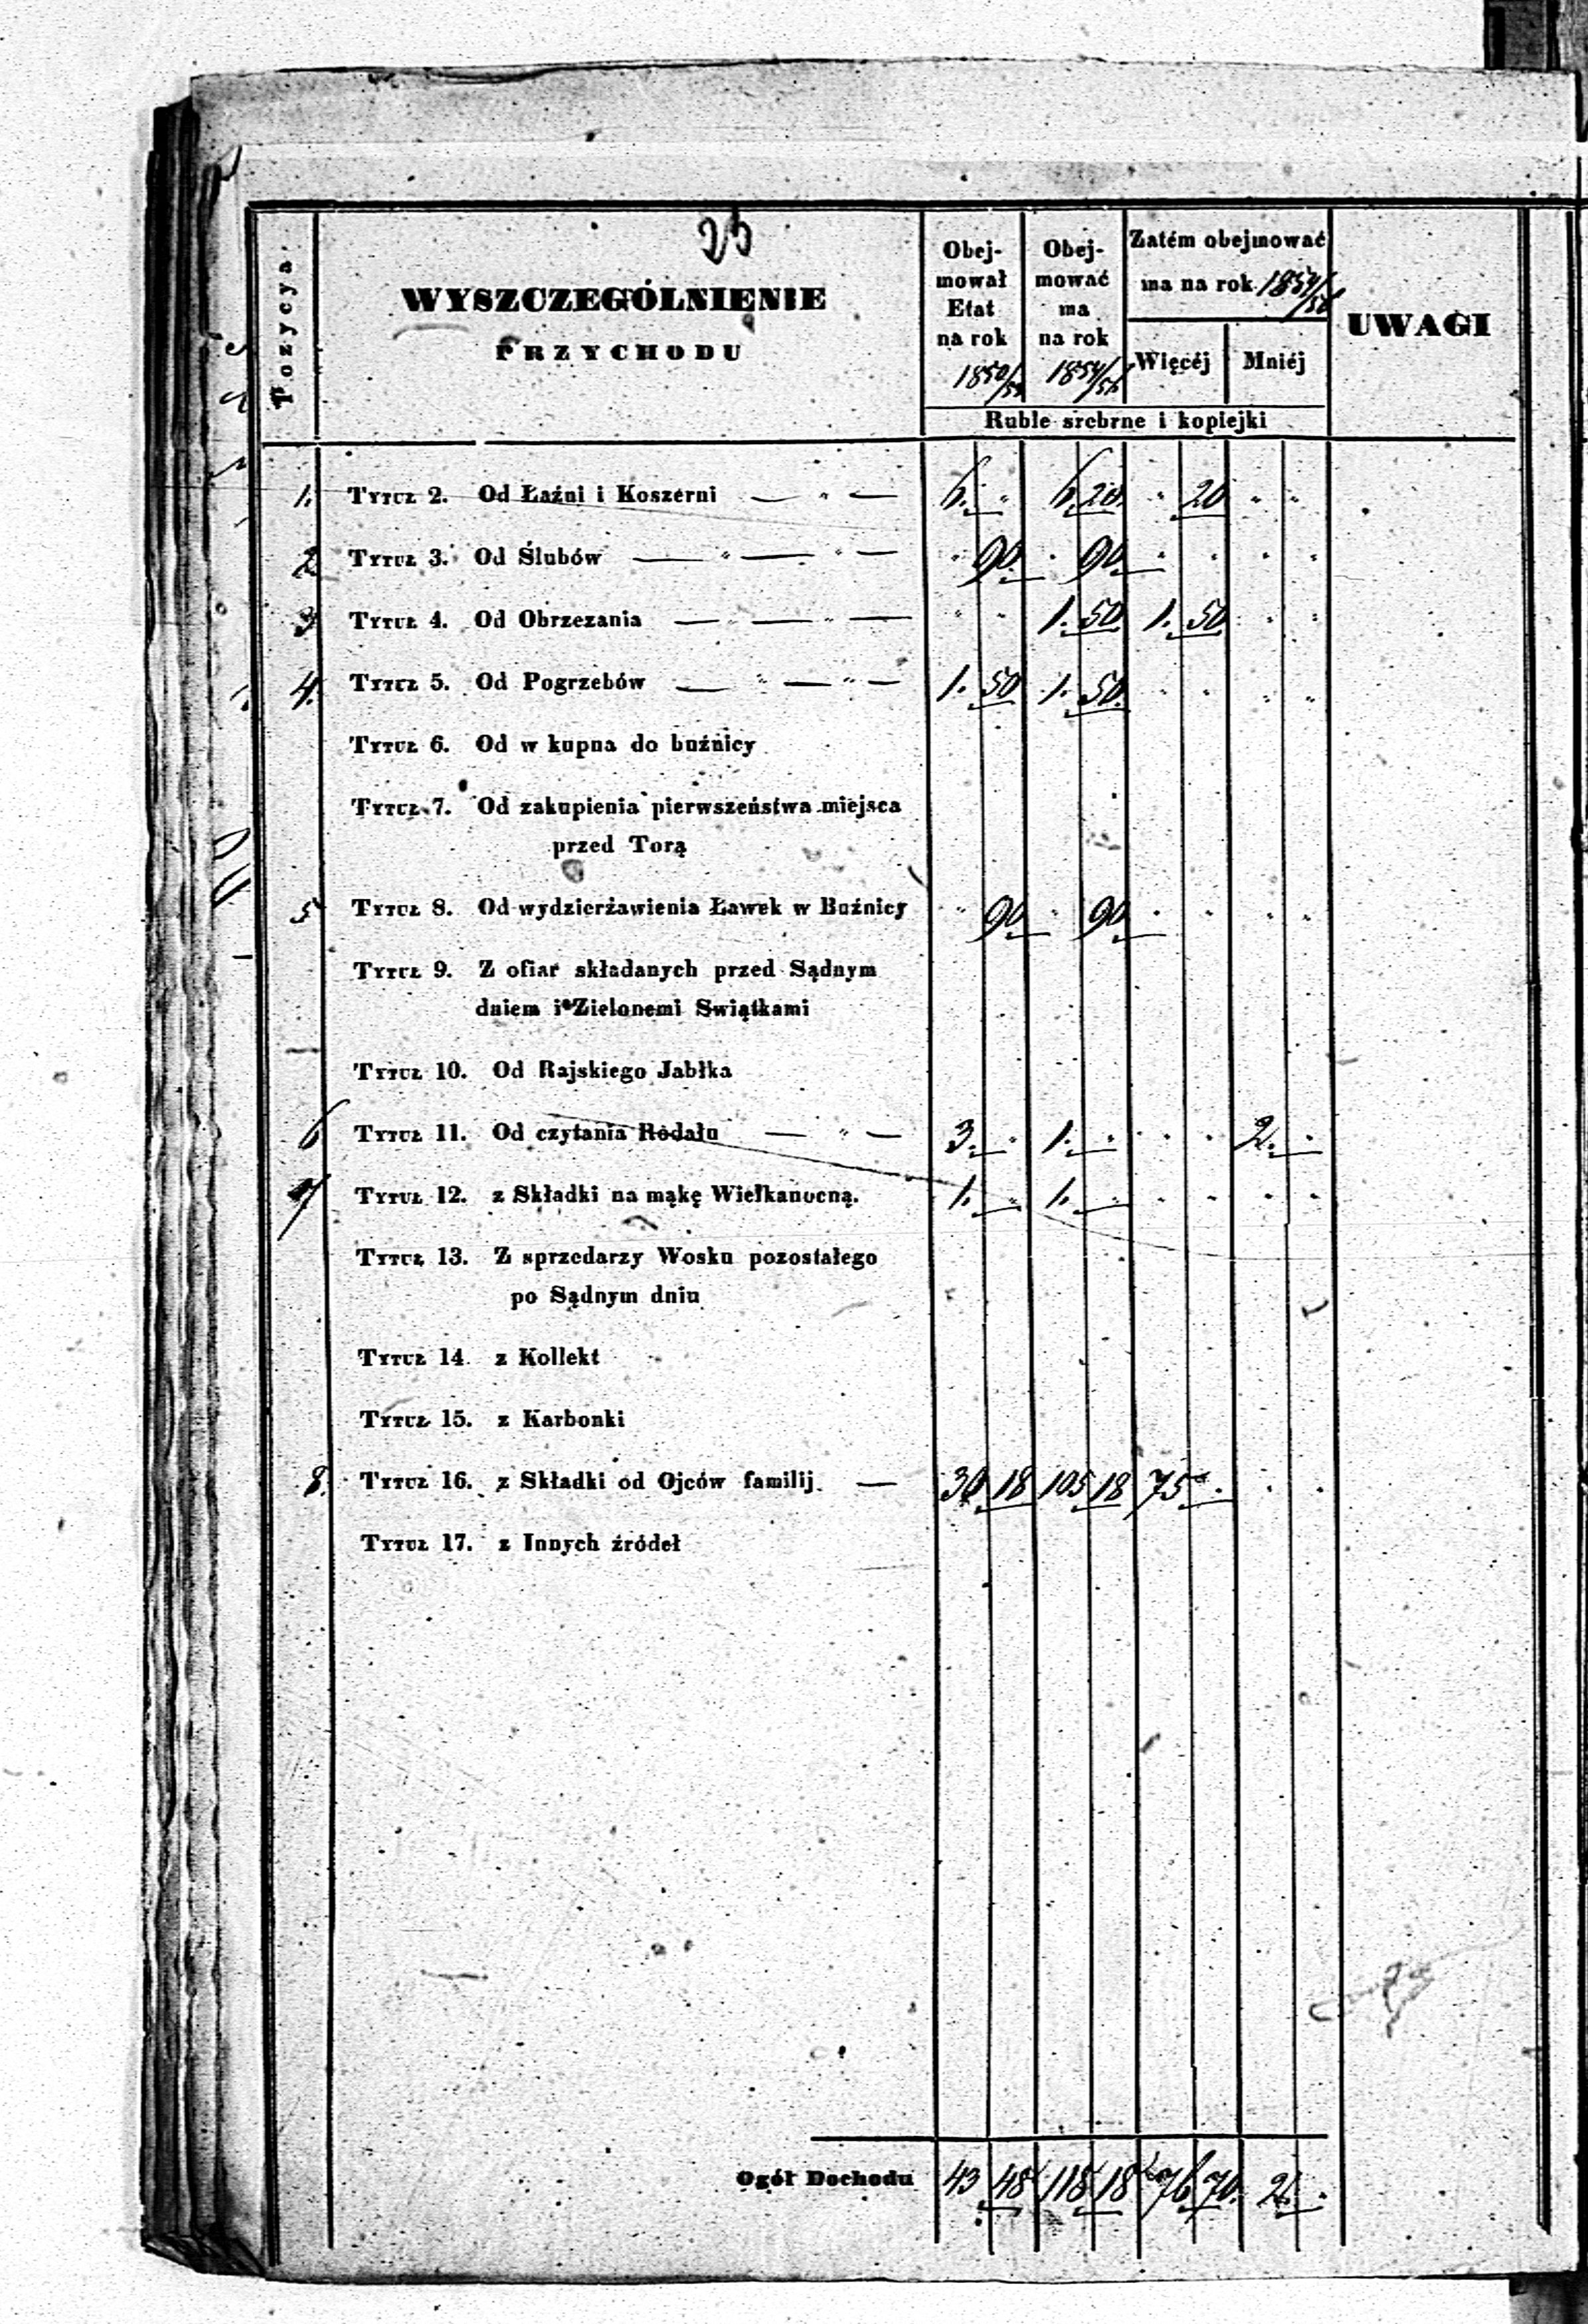 25
Pozycya.
WYSZCZEGÓLNIENIE
PRZYCHODU
Obej-
mował
Etat
na rok
1850/
Obej-
mować
ma
na rok
1854/56
Zatém obejmować
ma na rok 1854/56
Więcéj Mniéj
UWAGI
Ruble srebrne i kopiejki
1. Tytuł 2. Od Łaźni i Koszerni — " — 6. " 6 20. " 20 " "
2 Tytuł 3. Od Ślubów — " — " — " 90. . 90. . . . .
3 Tytuł 4. Od Obrzezania — " — " — " " 1. 50. 1. 50 . .
4. Tytuł 5. Od Pogrzebów — " — " — 1. 50 1. 50. . . . .
Tytuł 6. Od w kupna do buźnicy
Tytuł 7. Od zakupienia pierwszeństwa miejsca
przed Torą
5 Tytuł 8. Od wydzierżawienia Ławek w Buźnicy " 90. . 90. . . . .
Tytuł 9. Z ofiar składanych przed Sądnym
dniem i Zielonemi Swiątkami
Tytuł 10. Od Rajskiego Jabłka
6 Tytuł 11. Od czytania Rodału — " — 3. . 1. . . . 2. .
7 Tytuł 12. z Składki na mąkę Wielkanocną. 1. . 1. . . . . .
Tytuł 13. Z sprzedarzy Wosku pozostałego
po Sądnym dniu
Tytuł 14. z Kollekt
Tytuł 15. z Karbonki
8. Tytuł 16. z Składki od Ojców familij. — 30 18 105 18 75 . . .
Tytuł 17. z Innych źródeł
Ogół Dochodu 43 48 118 18 76 70. 2. .